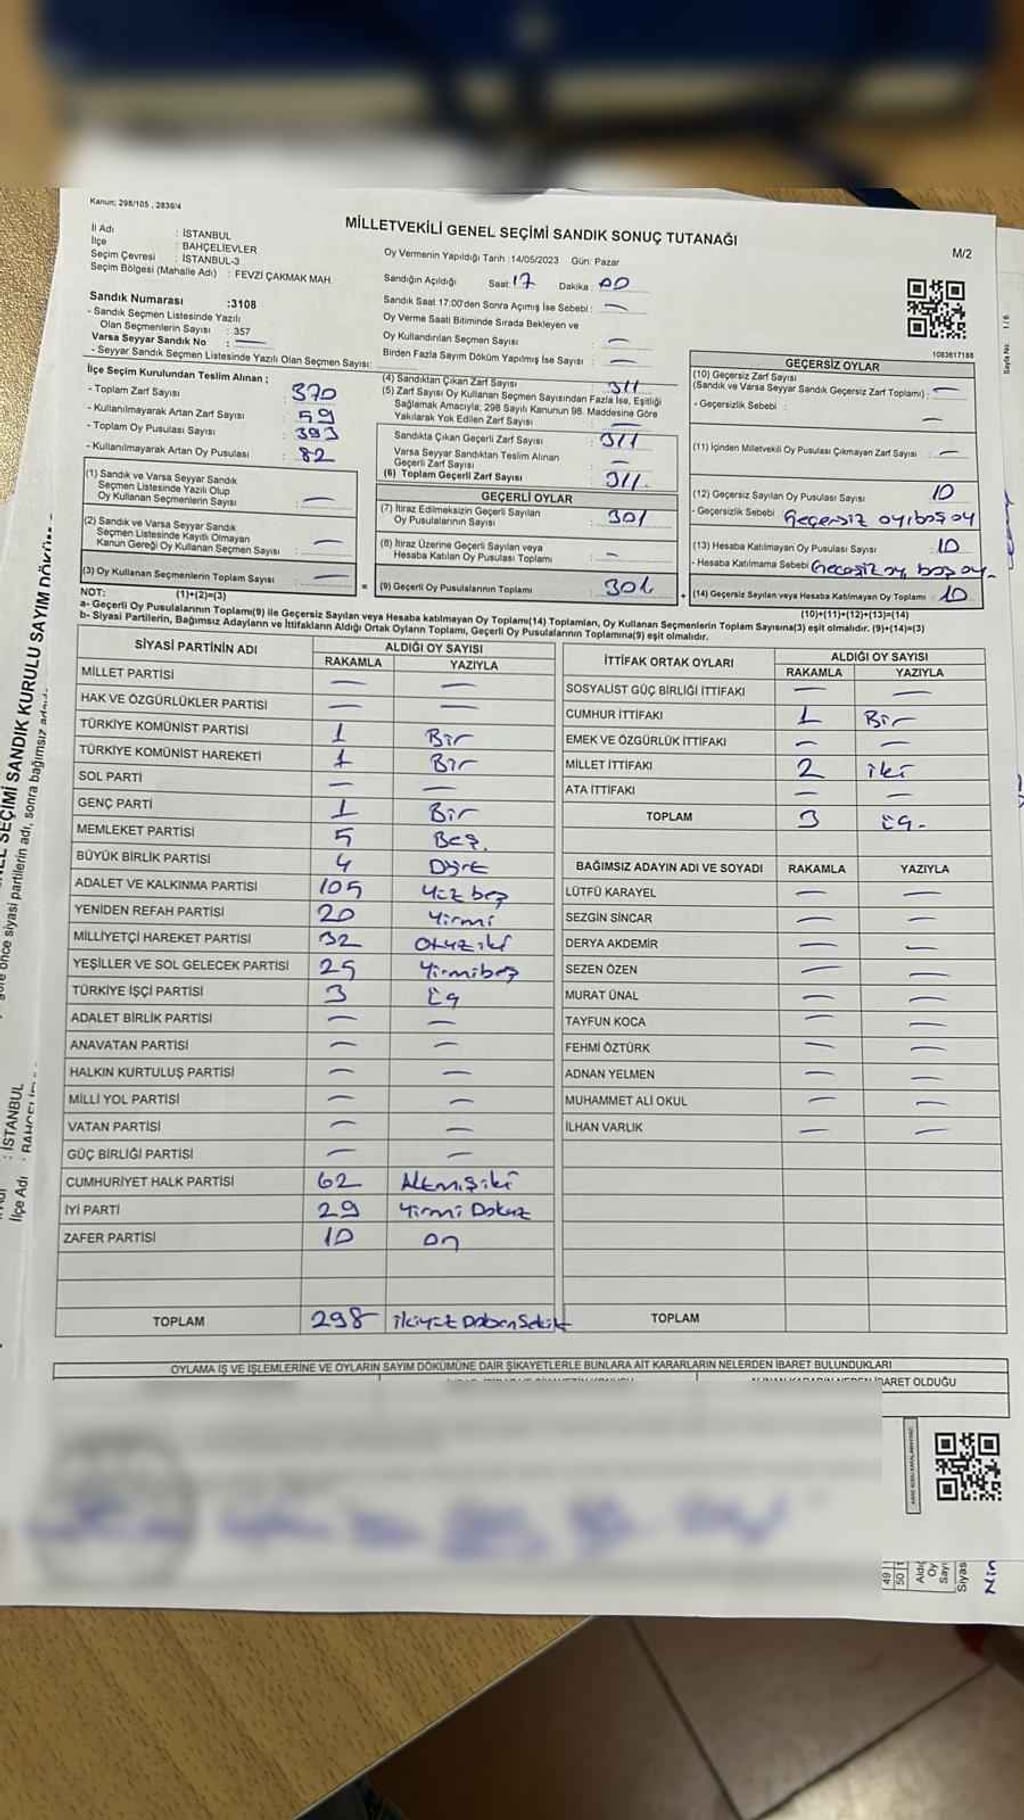 Kanun; 298/105 , 2839/4
MİLLETVEKİLİ GENEL SEÇİMİ SANDIK SONUÇ TUTANAĞI
M/2
İl Adı : İSTANBUL
İlçe : BAHÇELİEVLER
Seçim Çevresi : İSTANBUL-3
Seçim Bölgesi (Mahalle Adı) : FEVZİ ÇAKMAK MAH.
Oy Vermenin Yapıldığı Tarih :14/05/2023 Gün: Pazar
Sandığın Açıldığı Saat: 17 Dakika: 00
Sandık Saat 17:00'den Sonra Açımış İse Sebebi : —
Oy Verme Saati Bitiminde Sırada Bekleyen ve
Oy Kullandırılan Seçmen Sayısı : —
Birden Fazla Sayım Döküm Yapılmış İse Sayısı : —
Sandık Numarası :3108
- Sandık Seçmen Listesinde Yazılı
Olan Seçmenlerin Sayısı : 357
Varsa Seyyar Sandık No : —
- Seyyar Sandık Seçmen Listesinde Yazılı Olan Seçmen Sayısı:
1083617188
İlçe Seçim Kurulundan Teslim Alınan ;
- Toplam Zarf Sayısı : 370
- Kullanılmayarak Artan Zarf Sayısı : 59
- Toplam Oy Pusulası Sayısı : 393
- Kullanılmayarak Artan Oy Pusulası : 82
(1) Sandık ve Varsa Seyyar Sandık
Seçmen Listesinde Yazılı Olup
Oy Kullanan Seçmenlerin Sayısı : —
(2) Sandık ve Varsa Seyyar Sandık
Seçmen Listesinde Kayıtlı Olmayan
Kanun Gereği Oy Kullanan Seçmen Sayısı : —
(3) Oy Kullanan Seçmenlerin Toplam Sayısı : —
(4) Sandıktan Çıkan Zarf Sayısı : 311
(5) Zarf Sayısı Oy Kullanan Seçmen Sayısından Fazla İse, Eşitliği
Sağlamak Amacıyla; 298 Sayılı Kanunun 98. Maddesine Göre
Yakılarak Yok Edilen Zarf Sayısı : —
Sandıkta Çıkan Geçerli Zarf Sayısı : 311
Varsa Seyyar Sandıktan Teslim Alınan
Geçerli Zarf Sayısı : —
(6) Toplam Geçerli Zarf Sayısı : 311
GEÇERLİ OYLAR
(7) İtiraz Edilmeksizin Geçerli Sayılan
Oy Pusulalarının Sayısı : 301
(8) İtiraz Üzerine Geçerli Sayılan veya
Hesaba Katılan Oy Pusulası Toplamı : —
= (9) Geçerli Oy Pusulalarının Toplamı : 301
GEÇERSİZ OYLAR
(10) Geçersiz Zarf Sayısı
(Sandık ve Varsa Seyyar Sandık Geçersiz Zarf Toplamı) : —
- Geçersizlik Sebebi : —
(11) İçinden Milletvekili Oy Pusulası Çıkmayan Zarf Sayısı : —
(12) Geçersiz Sayılan Oy Pusulası Sayısı : 10
- Geçersizlik Sebebi : Geçersiz oyıboş oy
(13) Hesaba Katılmayan Oy Pusulası Sayısı : 10
- Hesaba Katılmama Sebebi : Geçesiz oy, boş oy-
+ (14) Geçersiz Sayılan veya Hesaba Katılmayan Oy Toplamı : 10
NOT: (1)+(2)=(3) (10)+(11)+(12)+(13)=(14)
a- Geçerli Oy Pusulalarının Toplamı(9) ile Geçersiz Sayılan veya Hesaba katılmayan Oy Toplamı(14) Toplamları, Oy Kullanan Seçmenlerin Toplam Sayısına(3) eşit olmalıdır. (9)+(14)=(3)
b- Siyasi Partilerin, Bağımsız Adayların ve İttifakların Aldığı Ortak Oyların Toplamı, Geçerli Oy Pusulalarının Toplamına(9) eşit olmalıdır.
SİYASİ PARTİNİN ADI ALDIĞI OY SAYISI
RAKAMLA YAZIYLA
MİLLET PARTİSİ — —
HAK VE ÖZGÜRLÜKLER PARTİSİ — —
TÜRKİYE KOMÜNİST PARTİSİ 1 Bir
TÜRKİYE KOMÜNİST HAREKETİ 1 Bir
SOL PARTİ — —
GENÇ PARTİ 1 Bir
MEMLEKET PARTİSİ 5 Beş.
BÜYÜK BİRLİK PARTİSİ 4 Dört
ADALET VE KALKINMA PARTİSİ 105 Yüz beş
YENİDEN REFAH PARTİSİ 20 Yirmi
MİLLİYETÇİ HAREKET PARTİSİ 32 Otuz iki
YEŞİLLER VE SOL GELECEK PARTİSİ 25 Yirmibeş
TÜRKİYE İŞÇİ PARTİSİ 3 Üç
ADALET BİRLİK PARTİSİ — —
ANAVATAN PARTİSİ — —
HALKIN KURTULUŞ PARTİSİ — —
MİLLİ YOL PARTİSİ — —
VATAN PARTİSİ — —
GÜÇ BİRLİĞİ PARTİSİ — —
CUMHURİYET HALK PARTİSİ 62 Altmışiki
İYİ PARTİ 29 Yirmi Dokuz
ZAFER PARTİSİ 10 On
TOPLAM 298 ikiyüz DoksanSekiz
İTTİFAK ORTAK OYLARI ALDIĞI OY SAYISI
RAKAMLA YAZIYLA
SOSYALİST GÜÇ BİRLİĞİ İTTİFAKI — —
CUMHUR İTTİFAKI 1 Bir
EMEK VE ÖZGÜRLÜK İTTİFAKI — —
MİLLET İTTİFAKI 2 iki
ATA İTTİFAKI — —
TOPLAM 3 üç.
BAĞIMSIZ ADAYIN ADI VE SOYADI RAKAMLA YAZIYLA
LÜTFÜ KARAYEL — —
SEZGİN SİNCAR — —
DERYA AKDEMİR — —
SEZEN ÖZEN — —
MURAT ÜNAL — —
TAYFUN KOCA — —
FEHMİ ÖZTÜRK — —
ADNAN YELMEN — —
MUHAMMET ALİ OKUL — —
İLHAN VARLIK — —
TOPLAM
OYLAMA İŞ VE İŞLEMLERİNE VE OYLARIN SAYIM DÖKÜMÜNE DAİR ŞİKAYETLERLE BUNLARA AİT KARARLARIN NELERDEN İBARET BULUNDUKLARI
İBARET OLDUĞU
SEÇİMİ SANDIK KURULU SAYIM DÖKÜM
önce siyasi partilerin adı, sonra bağımsız
: İSTANBUL
İlçe Adı
Sayfa No: 1 / 6
49
50
Oy